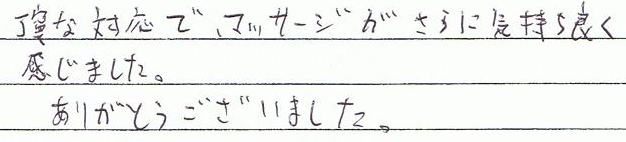 丁寧な対応で、マッサージがさらに気持ち良く
感じました。
ありがとうございました。